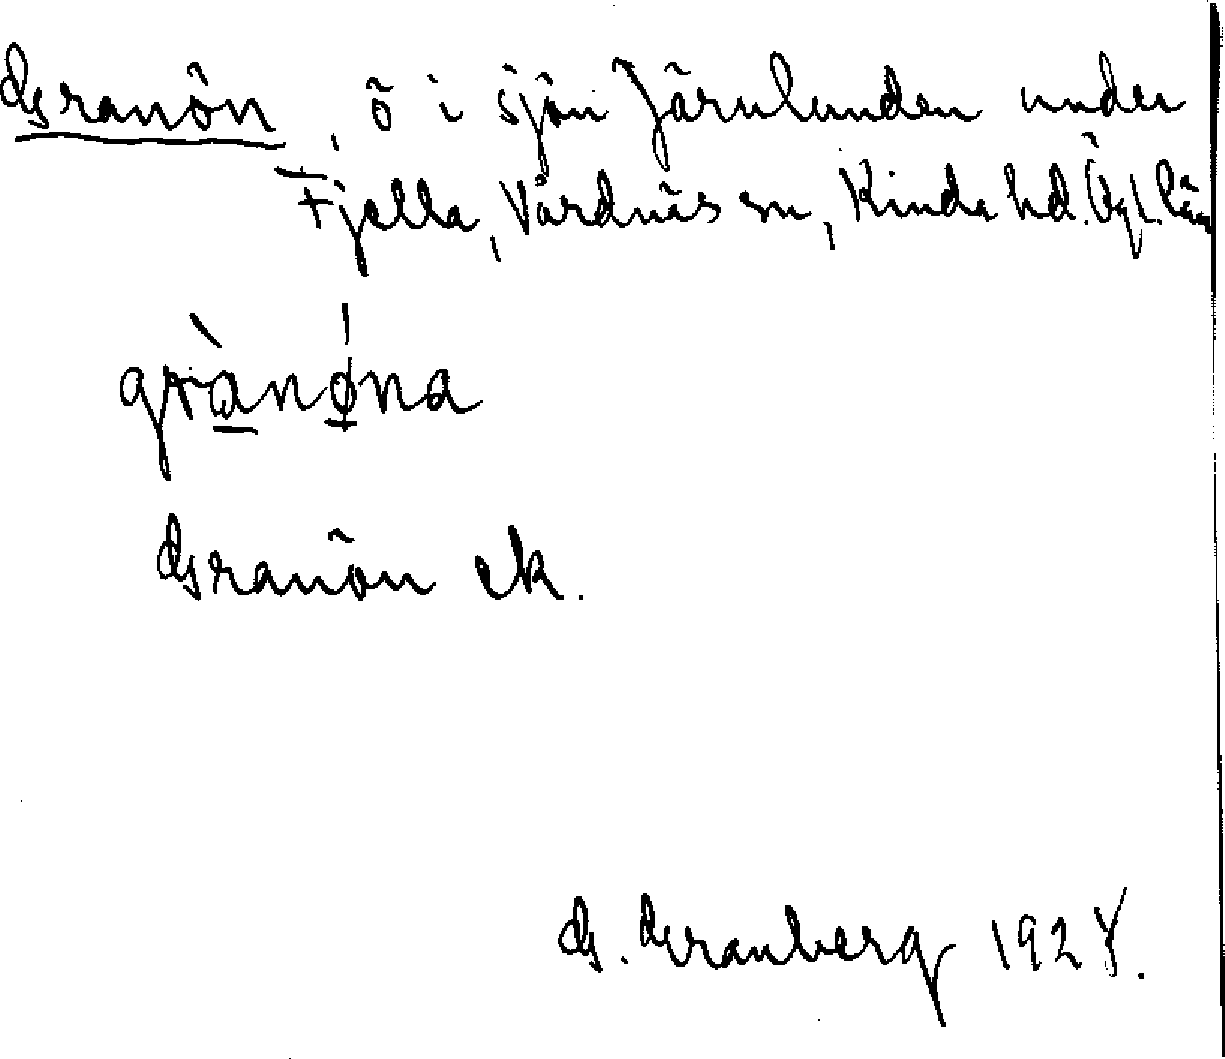 Granön, ö i sjön Järnlunden under
Fjella, Vårdnäs sn, Kinda hd. Ögl. län
grànø̀na
Granön ek.
G. Granberg 1928.